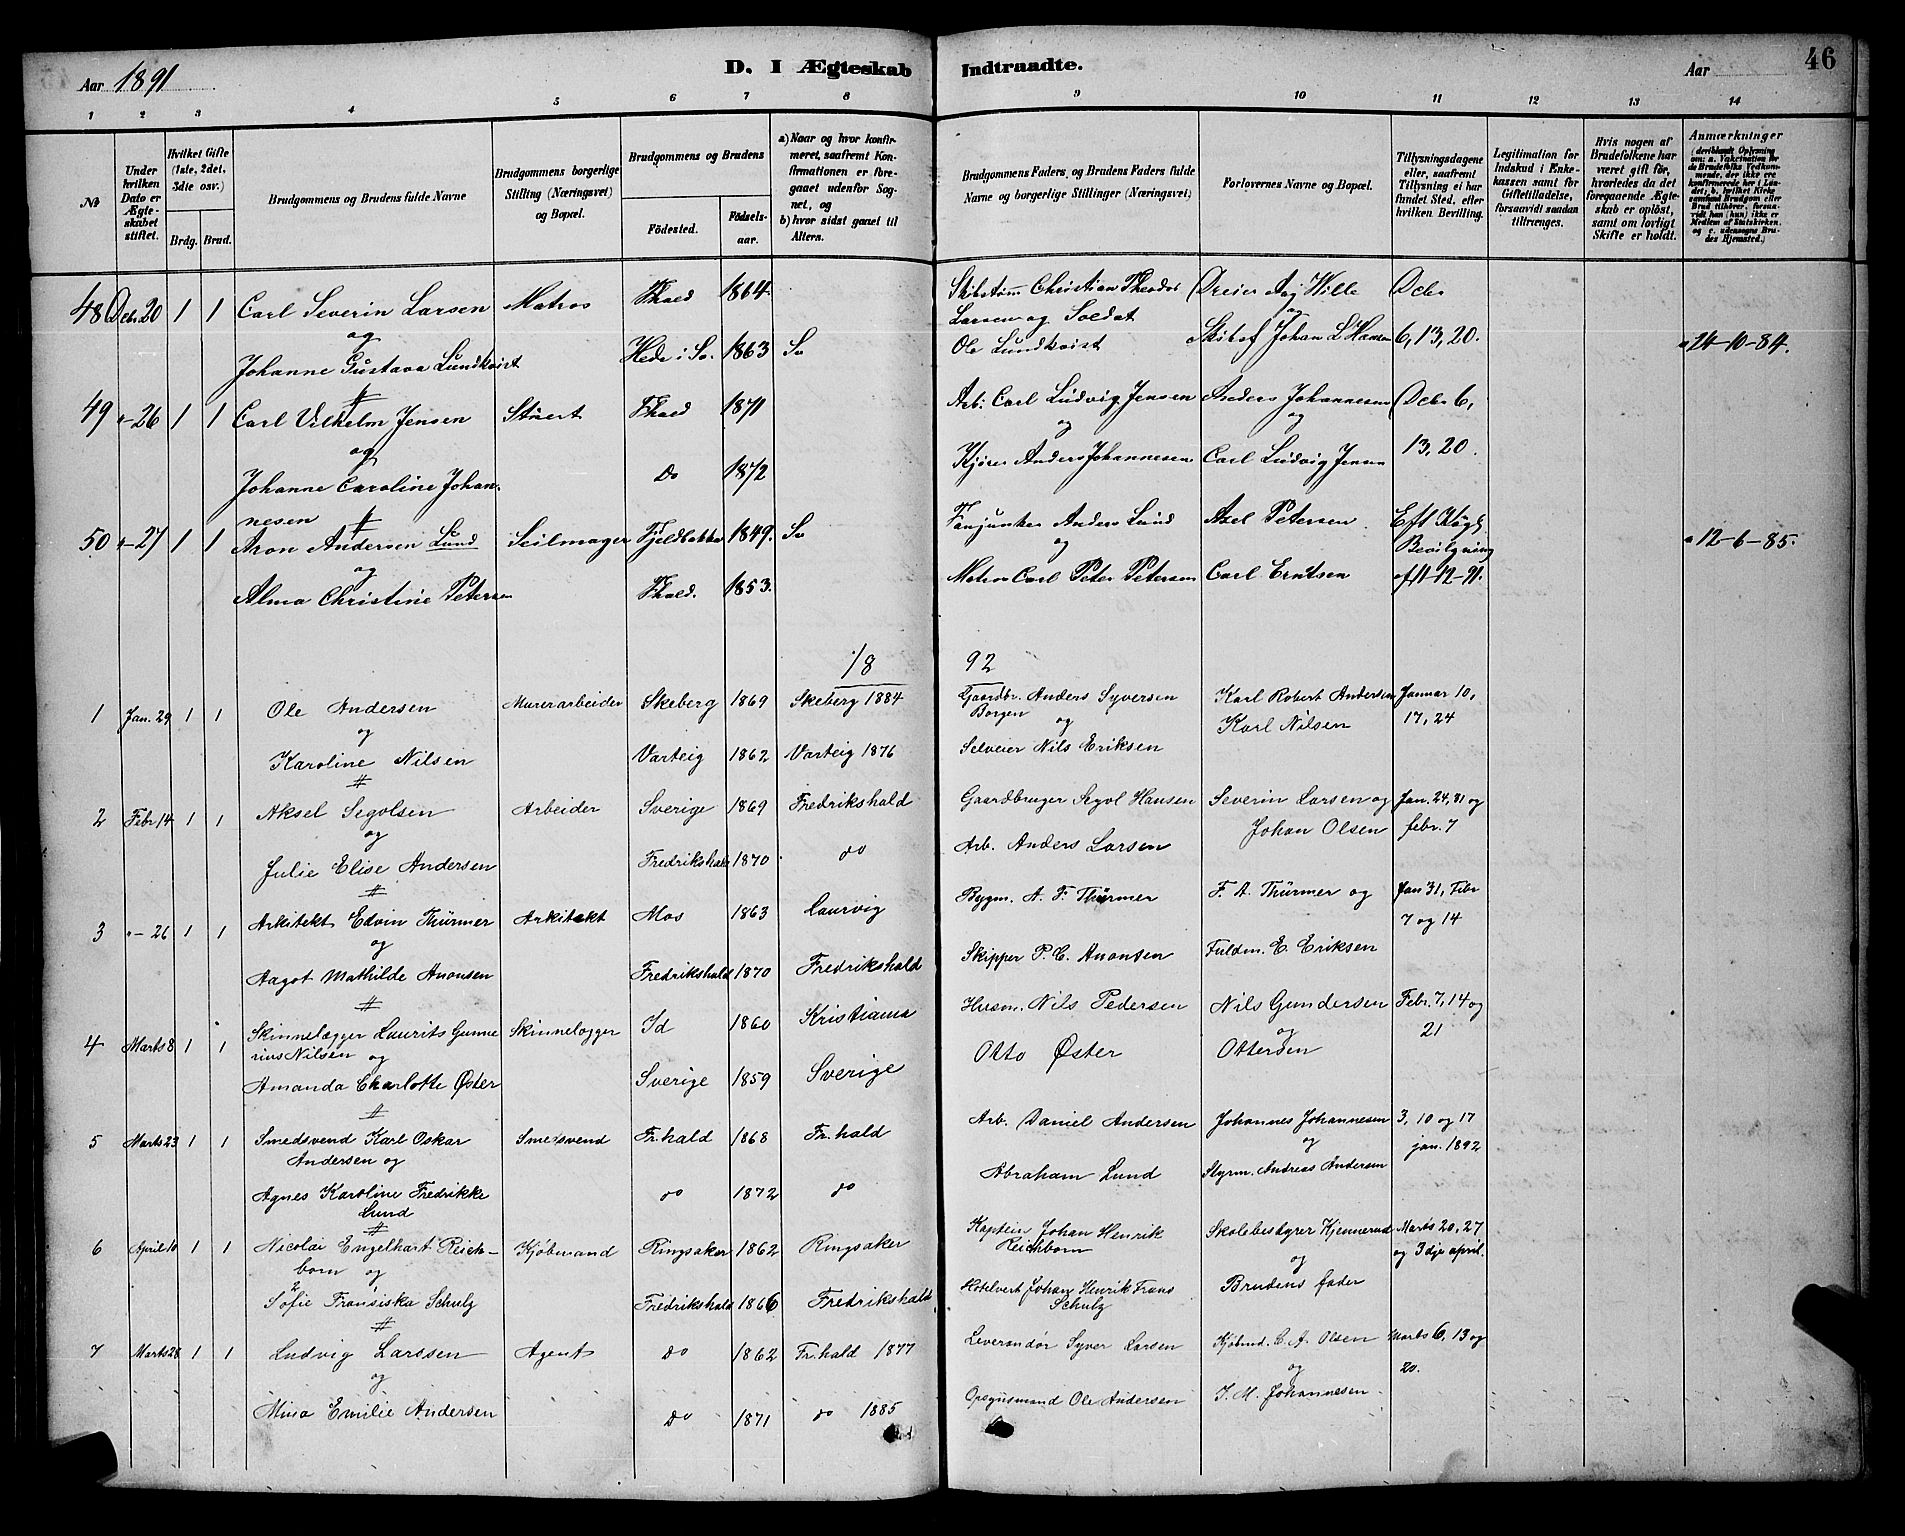 Aar 1891
D. I Ægteskab Indtraadte.
Aar
46
1 2 3 4 5 6 7 8 9 10 11 12 13 14
No
Under hvilken Dato er Ægteskabet stiftet.
Hvilket Gifte (1ste, 2det, 3die osv.)
Brdg. Brud.
Brudgommens og Brudens fulde Navne
Brudgommens borgerlige Stilling (Næringsvei) og Bopæl.
Brudgommens og Brudens
Födested. Födsels-aar.
a) Naar og hvor konfirmeret, saafremt Konfirmationen er foregaaet udenfor Sognet, og
b) hvor sidst gaaet til Alters.
Brudgommens Faders, og Brudens Faders fulde Navne og borgerlige Stillinger (Næringsvei)
Forlovernes Navne og Bopæl.
Tillysningsdagene eller, saafremt Tillysning ei har fundet Sted, efter hvilken Bevilling.
Legitimation for Indskud i Enkekassen samt for Giftetilladelse, forsaavidt saadan tiltrænges.
Hvis nogen af Brudefolkene har været gift för, hvorledes da det foregaaende Ægteskab er oplöst, samt om lovligt Skifte er holdt.
Anmærkninger
48 Dcbr 20 1 1 Carl Severin Larsen Matros Fhald 1864. Skibstøm Christian Theodor Dreier Aaj Wille Dcbr
og Larsen og Soldat og
Johanne Gustava Lundkvist Hede i Sv. 1863 Sv Ole Lundkvist Johan L Hansen 6, 13, 20. 24-10-84.
49 "- 26 1 1 Carl Vilhelm Jensen Stuert Fhald 1871 Arb: Carl Ludvig Jensen Anders Johannesen Dcbr 6,
og og og
Johanne Caroline Johan- Do 1872 Kjører Anders Johannesen Carl Ludvig Jensen 13, 20.
nesen
50 "- 27 1 1 Aron Andersen Lund Seilmager Fjeldbakka 1849. Sv Fanjunker Anders Lund Axel Petersen Eft Kgl
og og Bevilgning
Alma Christine Petersen Fhald. 1853. Matros Carl Peter Petersen Carl Erntsen af 11-12-91. 12-6-85.
18 92
1 Jan. 29 1 1 Ole Andersen Murerarbeider Skeberg 1869 Skeberg 1884 Gaardbr. Anders Syversen Karl Robert Andersen Januar 10,
og Borgen og Karl Nilsen 17, 24
Karoline Nilsen Varteig 1862 Varteig 1876 Selveier Nils Eriksen
2 Febr 14 1 1 Aksel Segolsen Arbeider Sverige 1869 Fredrikshald Gaardbruger Segol Hansen Severin Larsen og Jan. 24, 31 og
og Johan Olsen febr. 7
Julie Elise Andersen Fredrikshald 1870 do Arb. Anders Larsen
3 "- 26 1 1 Arkitekt Edvin Thürmer Arkitekt Mos 1863 Laurvig Bygm. A. F. Thürmer F. A. Thürmer og Jan 31, Febr
og 7 og 14
Aagot Mathilde Anonsen Fredrikshald 1870 Fredrikshald Skipper P. C. Anonsen Fuldm. E. Eriksen
4 Marts 8 1 1 Skinnelægger Laurits Gunne Skinnelægger Id 1860 Kristiania Husm. Nils Pedersen Nils Gundersen Febr. 7, 14 og
rius Nilsen og og 21
Amanda Charlotte Øster Sverige 1859 Sverige Otto Øster Ottersen
5 Marts 23 1 1 Smedsvend Karl Oskar Smedsvend Fr.hald 1868 Fr.hald Arb. Daniel Andersen Johannes Johannesen 3, 10 og 17
Andersen og og jan. 1892
Agnes Karoline Fredrikke do 1872 do Abraham Lund Styrm. Andreas Andersen
Lund
6 April 10 1 1 Nicolai Engelhart Reich- Kjøbmand Ringsaker 1862 Ringsaker Kaptein Johan Henrik Skolebestyrer Kjennerud Marts 20, 27
born og Reichborn og og 3dje april.
Sofie Fransiska Schulz Fredrikshald 1866 Fredrikshald Hotelvert Johan Henrik Frans Brudens fader
Schulz
7 Marts 28 1 1 Ludvig Larssen Agent Do 1862 Fr.hald 1877 Leverandør Syver Larsen Kjøbmd. C. A. Olsen Marts 6, 13 og
og og 20.
Mina Emilie Andersen Do 1871 do 1885 Opsynsmand Ole Andersen J. M. Johannesen